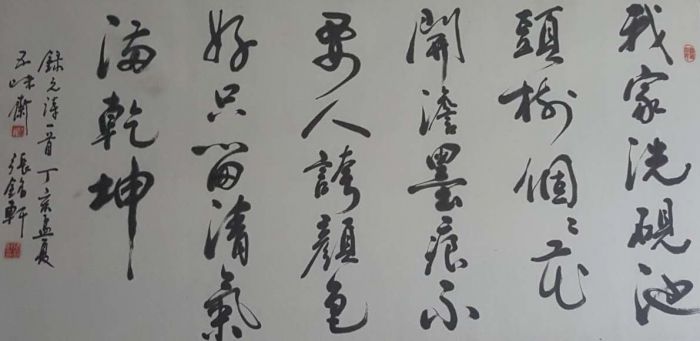 我家洗硯池
頭樹個〻花
開澹墨痕不
要人誇顏色
好只留清氣
滿乾坤
錄元詩一首 丁亥孟夏
味齋 張銘軒